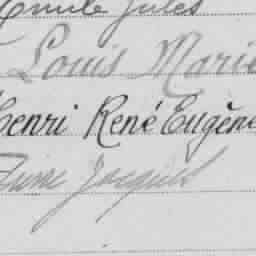 Emile Jules
Louis Marie
Henri René Eugène
Jacques